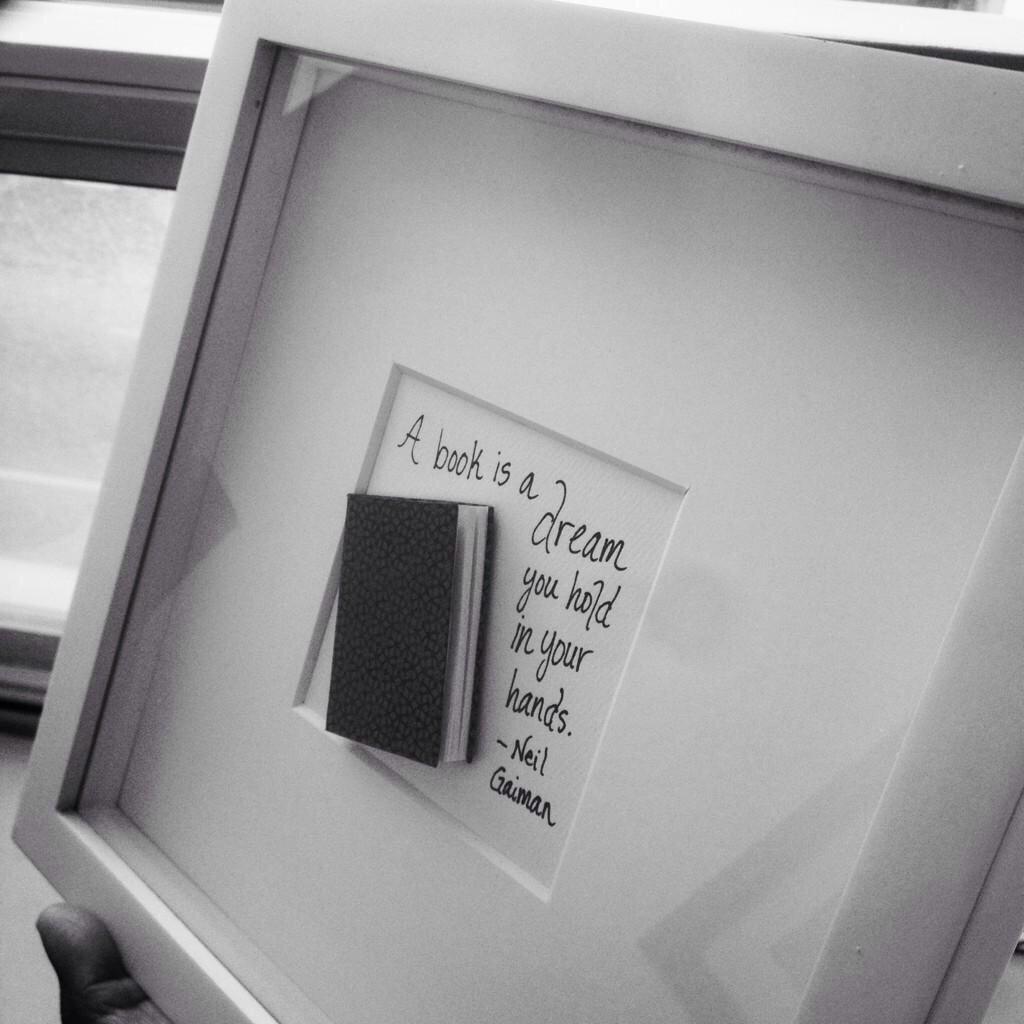 A book is a
dream
you hold
in your
hands.
- Neil
Gaiman